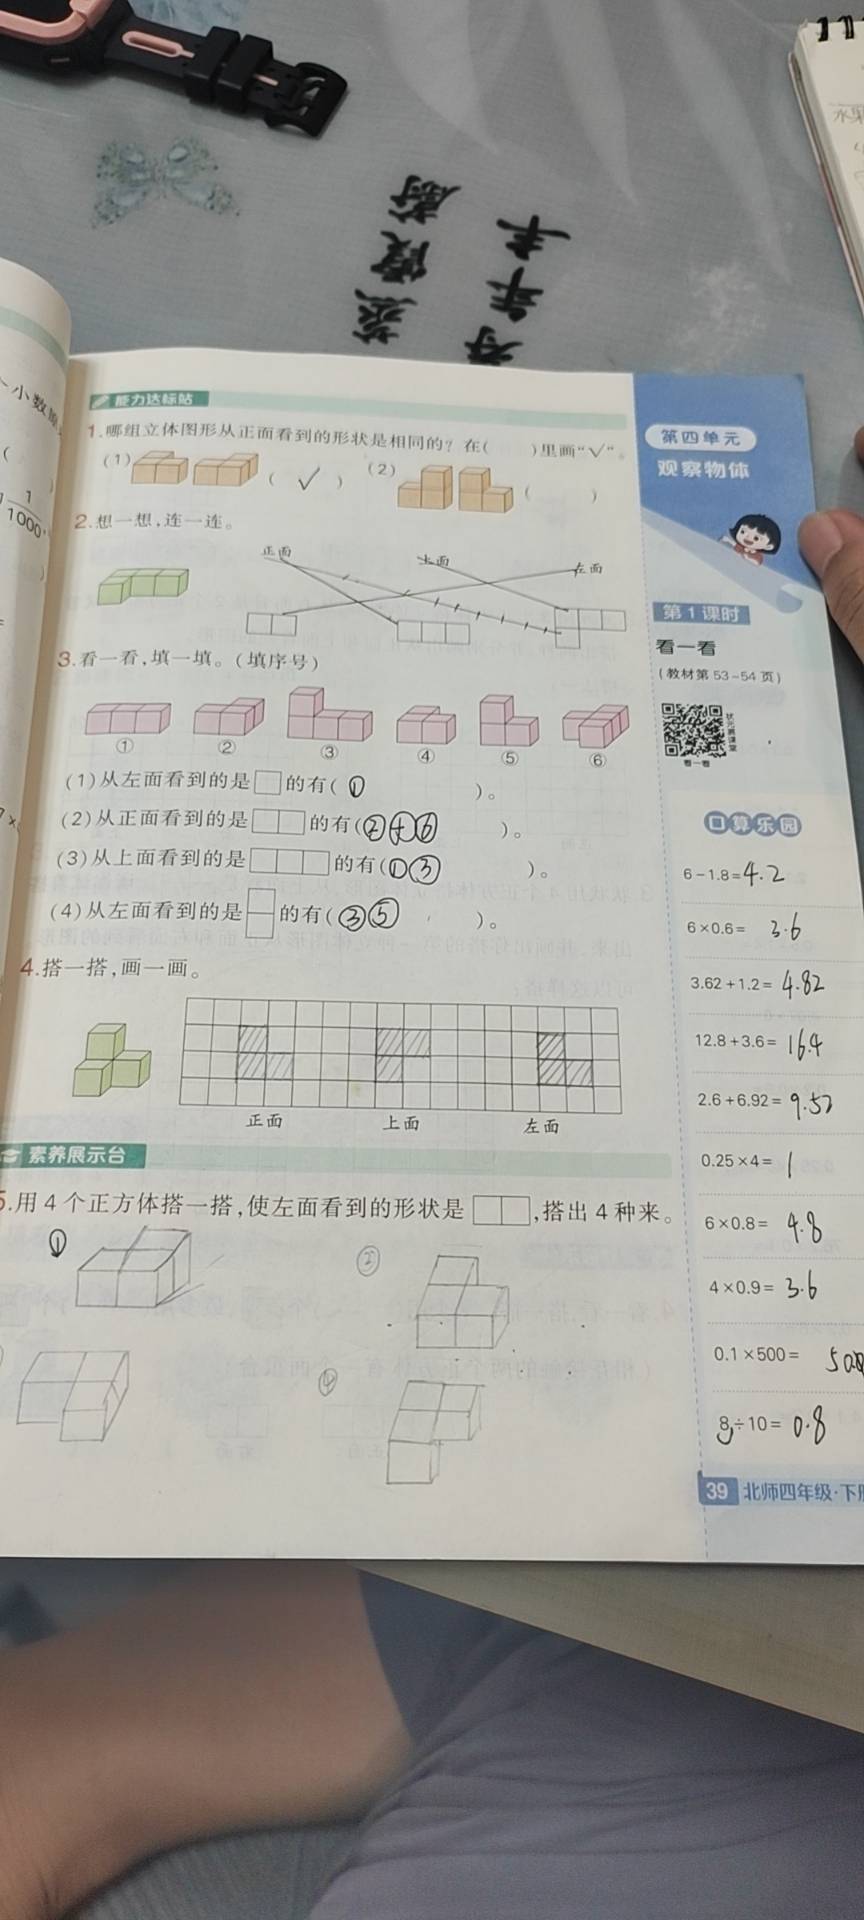 能力达标站
1.哪组立体图形从正面看到的形状是相同的？在(  )里画“√”。
(1) ( √ ) (2) (  )
2.想一想,连一连。
正面 上面 左面
3.看一看,填一填。(填序号)
① ② ③ ④ ⑤ ⑥
(1)从左面看到的是□的有( ① )。
(2)从正面看到的是□□的有(②④⑥ )。
(3)从上面看到的是□□□的有(①③ )。
(4)从左面看到的是的有(③⑤ )。
4.搭一搭,画一画。
正面 上面 左面
素养展示台
5.用4个正方体搭一搭,使左面看到的形状是□□,搭出4种来。
① ②
④
第四单元
观察物体
第1课时
看一看
(教材第53~54页)
状元成才课堂
看一看
口算乐园
6-1.8=4.2
6×0.6= 3.6
3.62+1.2= 4.82
12.8+3.6= 16.4
2.6+6.92= 9.52
0.25×4= 1
6×0.8= 4.8
4×0.9= 3.6
0.1×500=
8÷10= 0.8
39 北师四年级·下
小数
1
1000